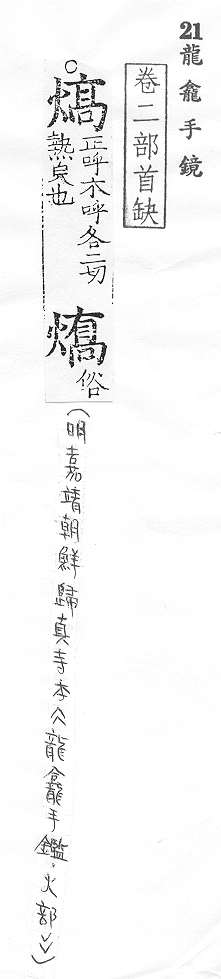 21龍龕手鏡
卷二部首缺
。熇正呼木呼各二切
熱㒵也
燆俗
(明嘉靖朝鮮歸真寺本《龍龕手鑑.火部》)